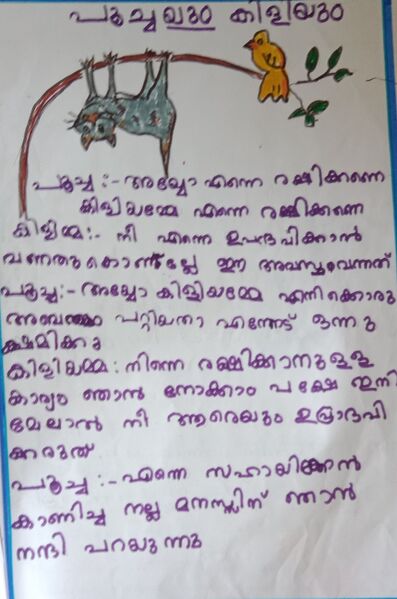 പൂച്ചയും കിളിയും
പൂച്ച :- അയ്യോ എന്നെ രക്ഷിക്കണെ
കിളിയമ്മേ എന്നെ രക്ഷിക്കണെ
കിളിമ്മ:- നീ എന്നെ ഉപദ്രവിക്കാൻ
വന്നതുകൊണ്ടല്ലേ ഈ അവസ്ഥവന്നത്
പൂച്ച:- അയ്യോ കിളിയമ്മേ എനിക്കൊരു
അബദ്ധം പറ്റിയതാ എന്നോട് ഒന്നു
ക്ഷമിക്കു
കിളിയമ്മ: നിന്നെ രക്ഷിക്കാനുള്ള
കാര്യം ഞാൻ നോക്കാം പക്ഷേ ഇനി
മേലാൽ നീ ആരെയും ഉപ്രദവി
ക്കരുത്
പൂച്ച:- എന്നെ സഹായിക്കാൻ
കാണിച്ച നല്ല മനസ്സിന് ഞാൻ
നന്ദി പറയുന്നു